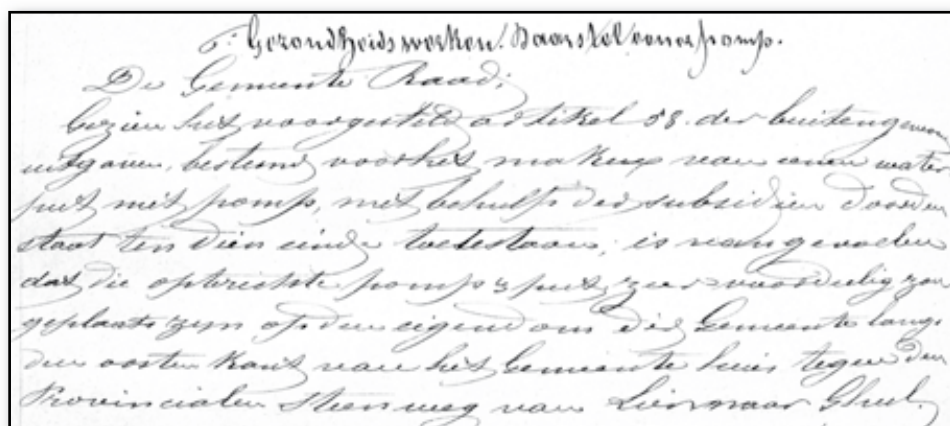 6° Gezondheidswerken. Daarstel eener pomp.
De Gemeente Raad;
Gezien het voorgesteld artikel 58. der buitengewone
uitgaven, bestemd voor het maken van eenen water
put met pomp, met behulp der subsidien door den
staat ten dien einde toetestaan; is van gevoelen
dat die opterichte pomp & put zeer voordeelig zou
geplaats zyn op den eigendom der Gemeente langs
den oosten kant van het Gemeente huis tegen den
Provincialen steenweg van Lier naar Gheel.